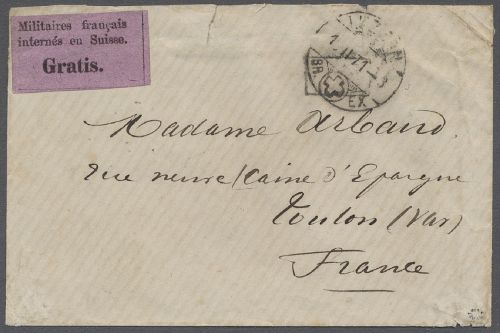 Militaires français
internés en Suisse.
Gratis.
BR
EX
Madame Arbaud.
rue neuve (Caine d'Epargne
Toulon (Var)
France